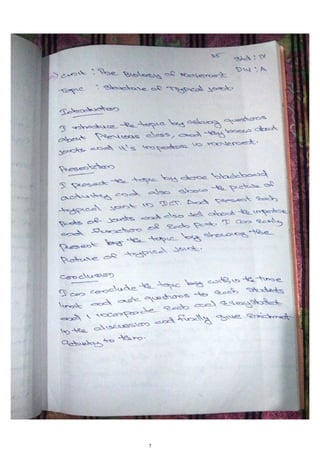 Std : IX
Unit : The Biology of Movement Div : A
Topic : Structure of Typical joint.
Introduction
I introduce the topic by asking questions
about Previous class, and they know about
joints and it's in movement.
Presentation
I present the topic by blackboard
activity and also show the picture of
typical joint in ICT. And present each
Parts of joints and also tell about the
and function of Each part. I can easily
Present by the topic by showing the
Picture of typical joint.
Conclusion
I can conclude the topic by within the time
limit and ask questions to each students
and I incorporate Each and Every student
in the discussion and finally give Enrichment
Activity to them.
7